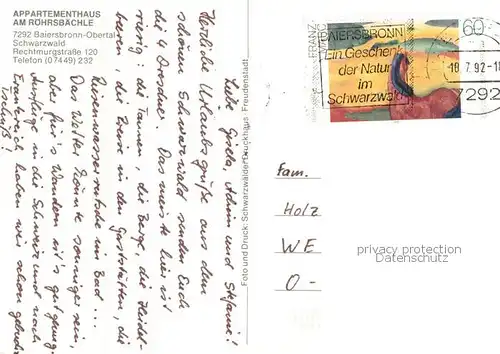 APPARTEMENTHAUS
AM RÖHRSBÄCHLE
7292 Baiersbronn-Obertal
Schwarzwald
Rechtmurgstraße 120
Telefon (07449) 232
Liebe Gisela, Achim und Stefanie!
Herzliche Urlaubsgrüße aus dem
schönen Schwarzwald senden Euch
die 4 Dresdner. Das meiste hier ist
riesig: die Tannen, die Berge, die Heidel-
beeren, die Preise in den Gaststätten, die
Riesenwasserrutsche im Bad ...
Das Wetter könnte sonniger sein,
aber für's Wandern ist's gut genug.
Ausflüge in die Schweiz und nach
Frankreich haben wir schon
Tschüß!
Foto und Druck: Schwarzwälder Druckhaus · Freudenstadt
FRANZ
60
BAIERSBRONN
Ein Geschenk
der Natur
im
Schwarzwald
7.92-18
7292
Fam.
Holz
WE
O-
privacy protection
Datenschutz